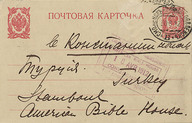 ПОЧТОВАЯ КАРТОЧКА
Константинополь
Турція Turkey
Stamboul
American Bible House